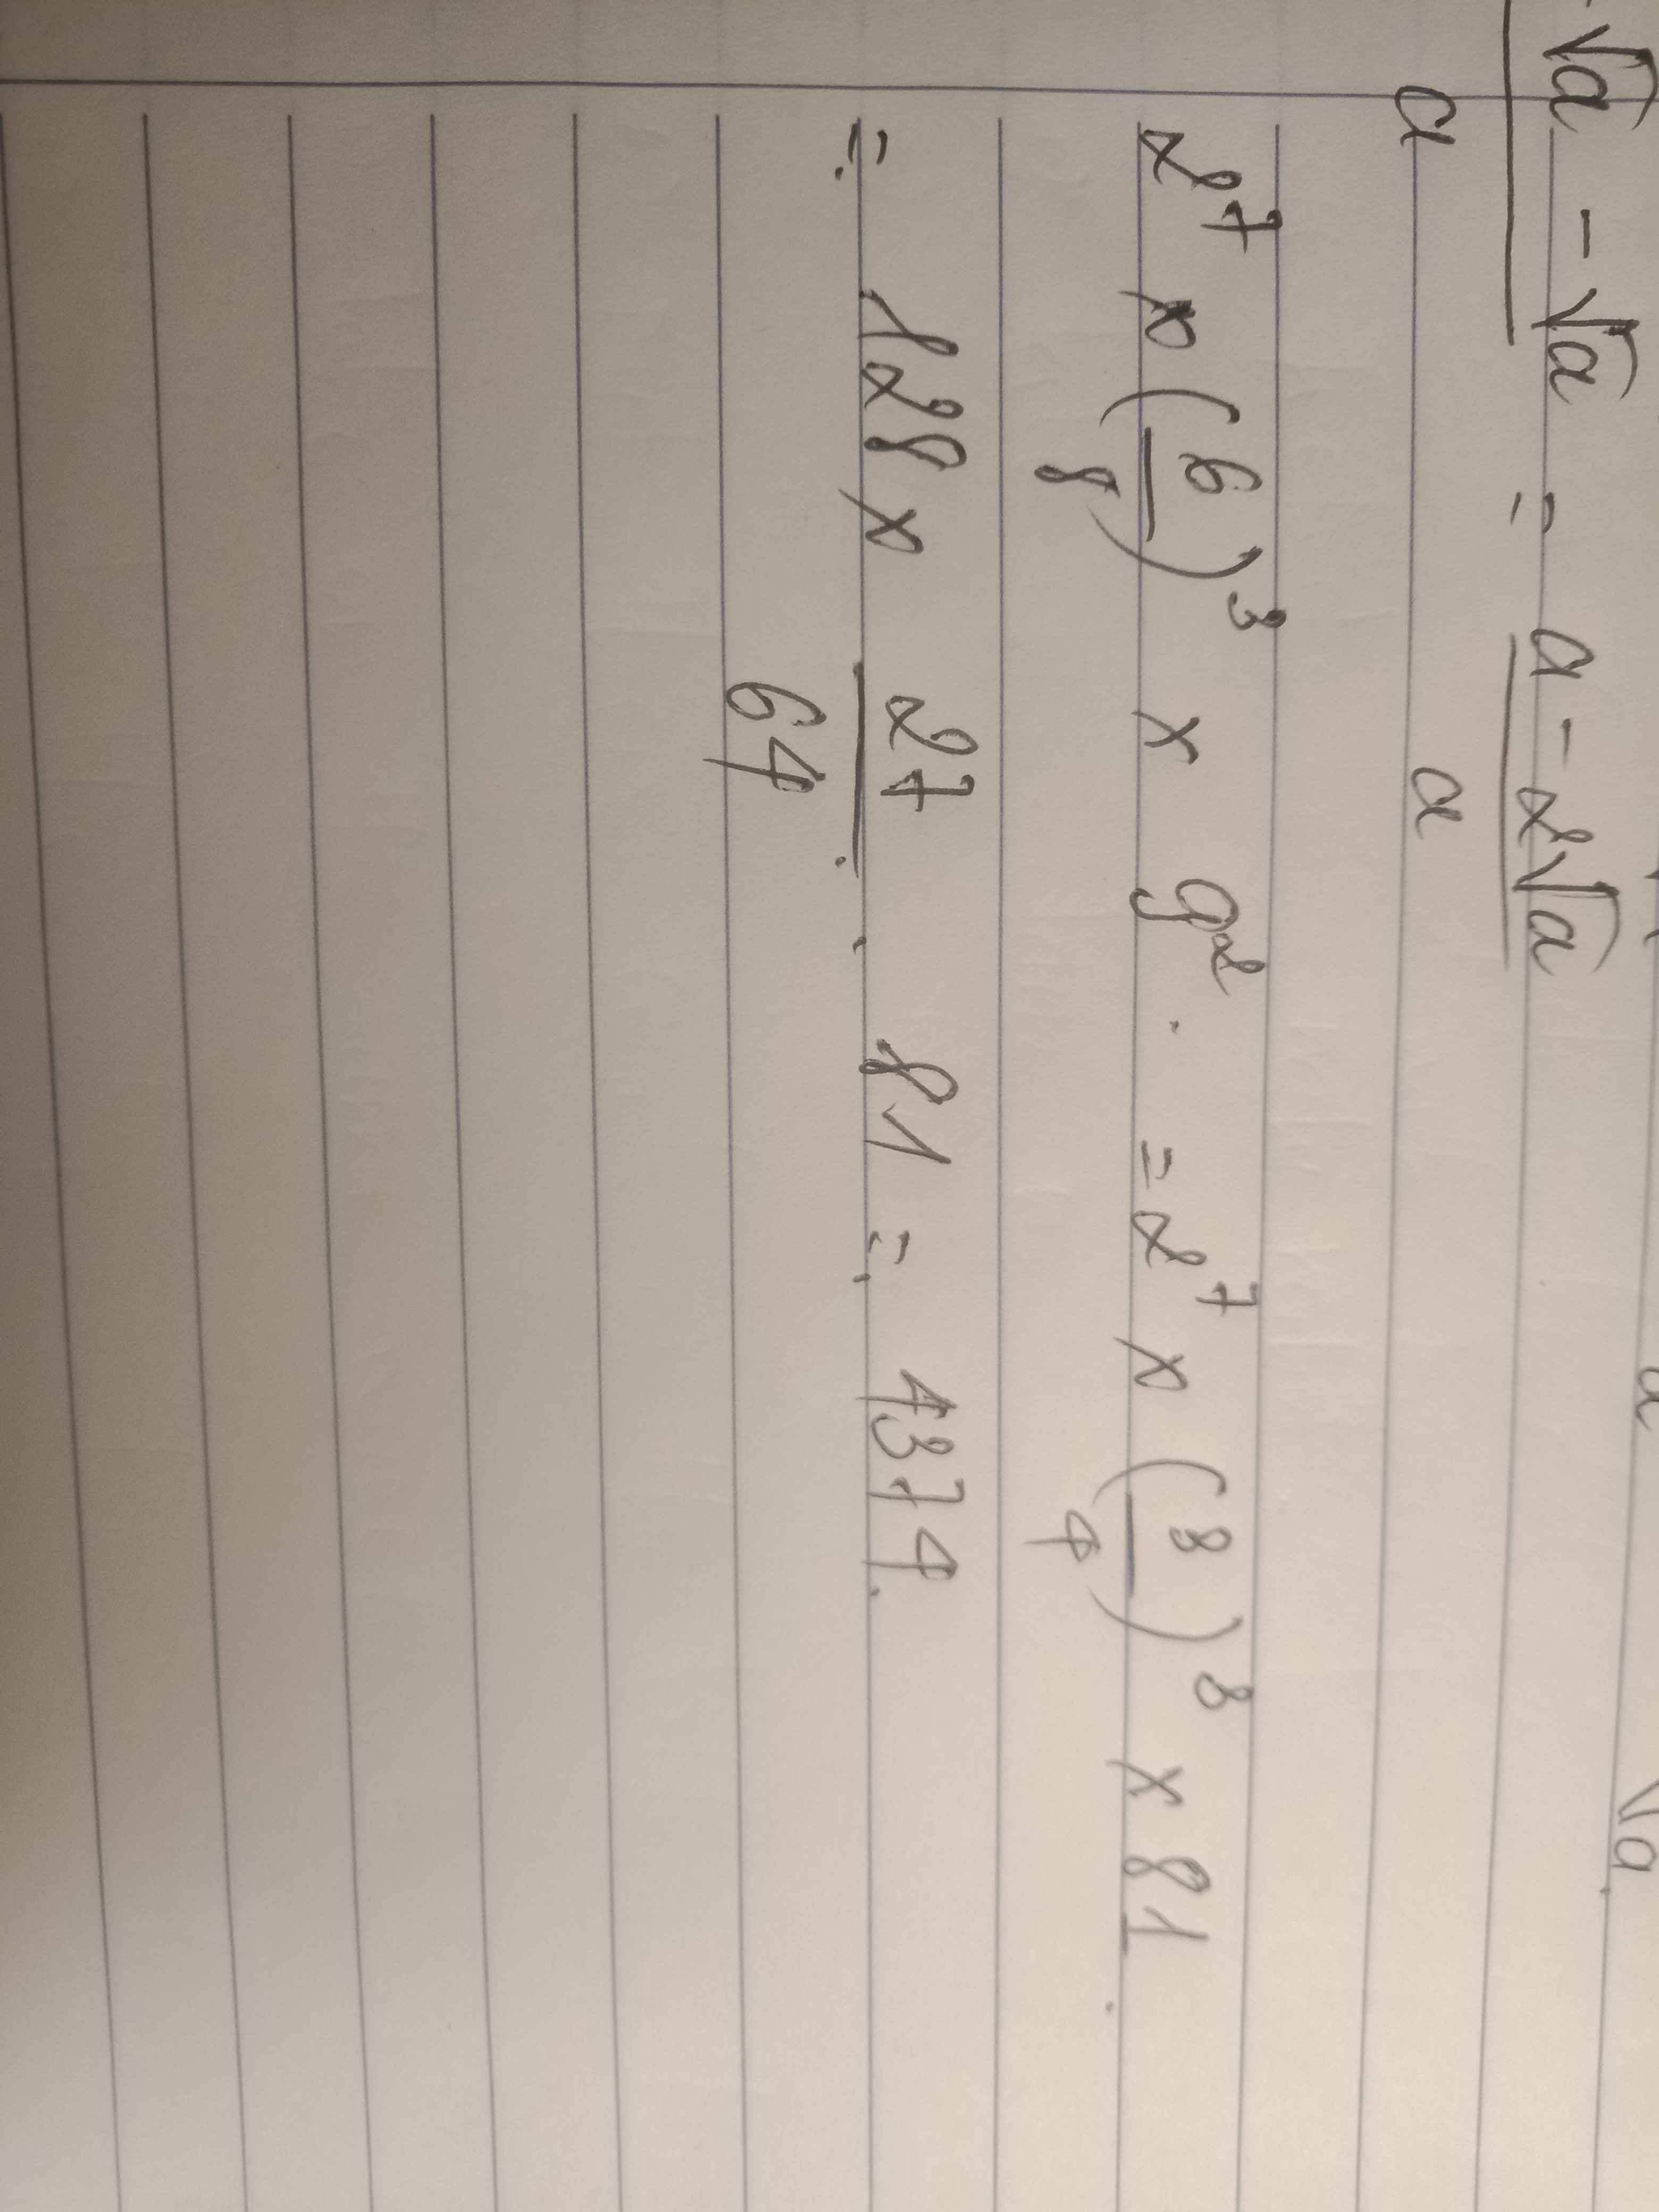 √a - √a = a - 2√a
a a
2⁷ x (6/8)³ x 9² . = 2⁷ x (3/4)³ x 81.
= 128 x 27/64 . 81 = 4374.